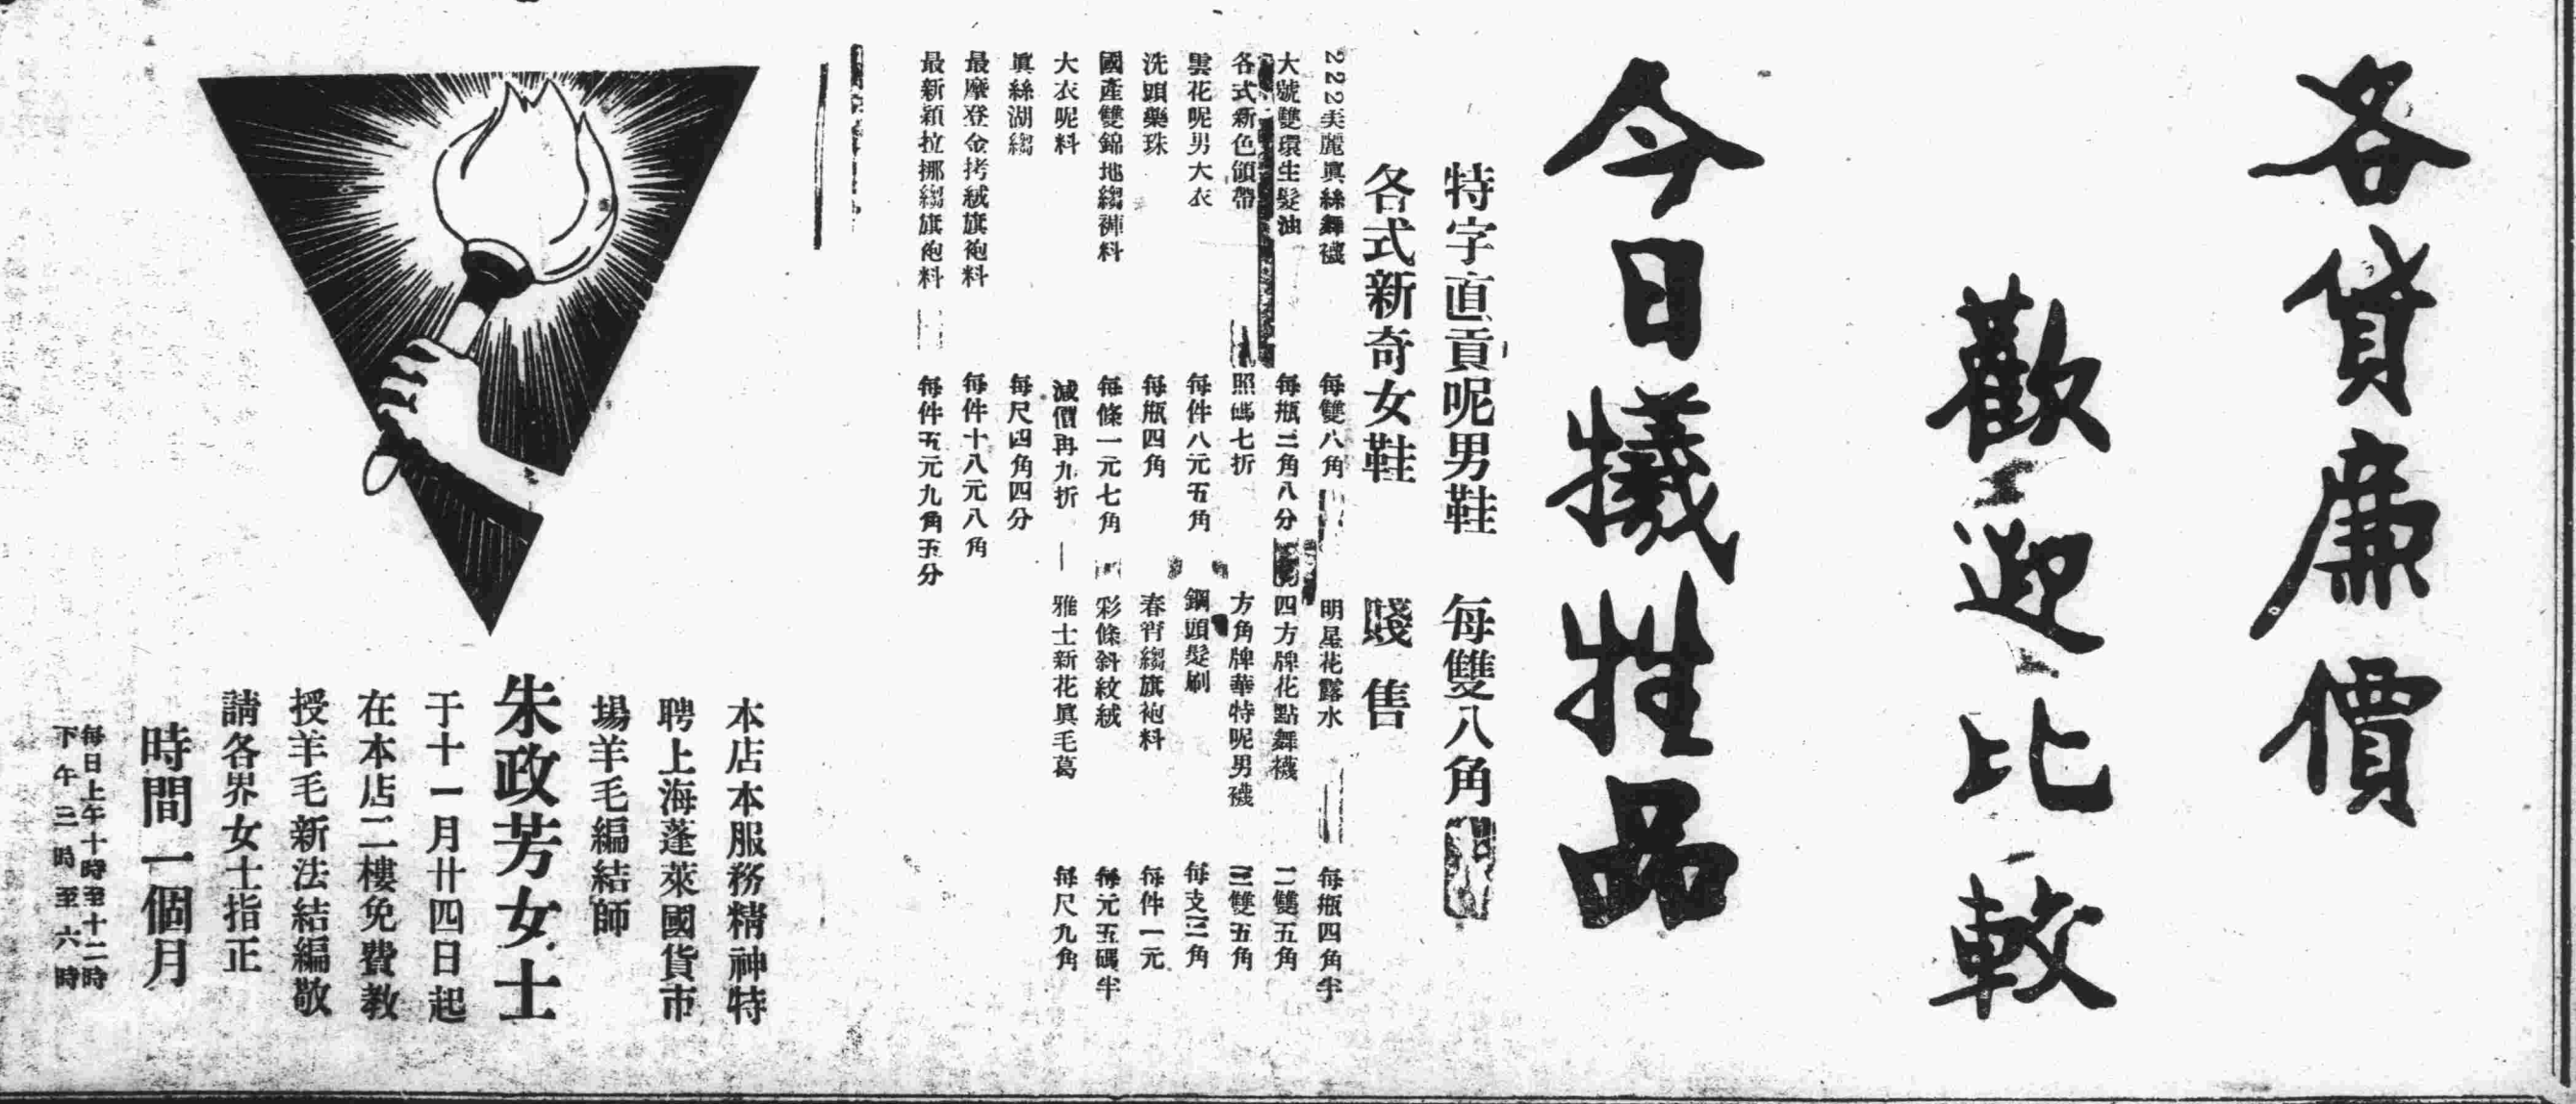 各貨廉價
歡迎比較
今日犧牲品
特字直貢呢男鞋 每雙八角
各式新奇女鞋 賤售
222美麗眞絲舞襪 每雙八角
明星花露水 每瓶四角半
大號雙環生髮油 每瓶二角八分
四方牌花點舞襪 二雙五角
各式新色領帶 照碼七折
方角牌華特呢男襪 三雙五角
雲花呢男大衣 每件八元五角
鋼頭髮刷 每支二角
洗頭藥珠 每瓶四角
春宵縐旗袍料 每件一元
國產雙錦地縐褲料 每條一元七角
彩條斜紋絨 每元五碼半
大衣呢料 減價再九折
雅士新花眞毛葛 每尺九角
眞絲湖縐 每尺四角四分
最摩登金拷絨旗袍料 每件十八元八角
最新穎拉挪縐旗袍料 每件五元九角五分
本店本服務精神特
聘上海蓬萊國貨市
場羊毛編結師
朱政芳女士
于十一月廿四日起
在本店二樓免費教
授羊毛新法結編敬
請各界女士指正
時間一個月
每日上午十時至十二時
下午二時至六時